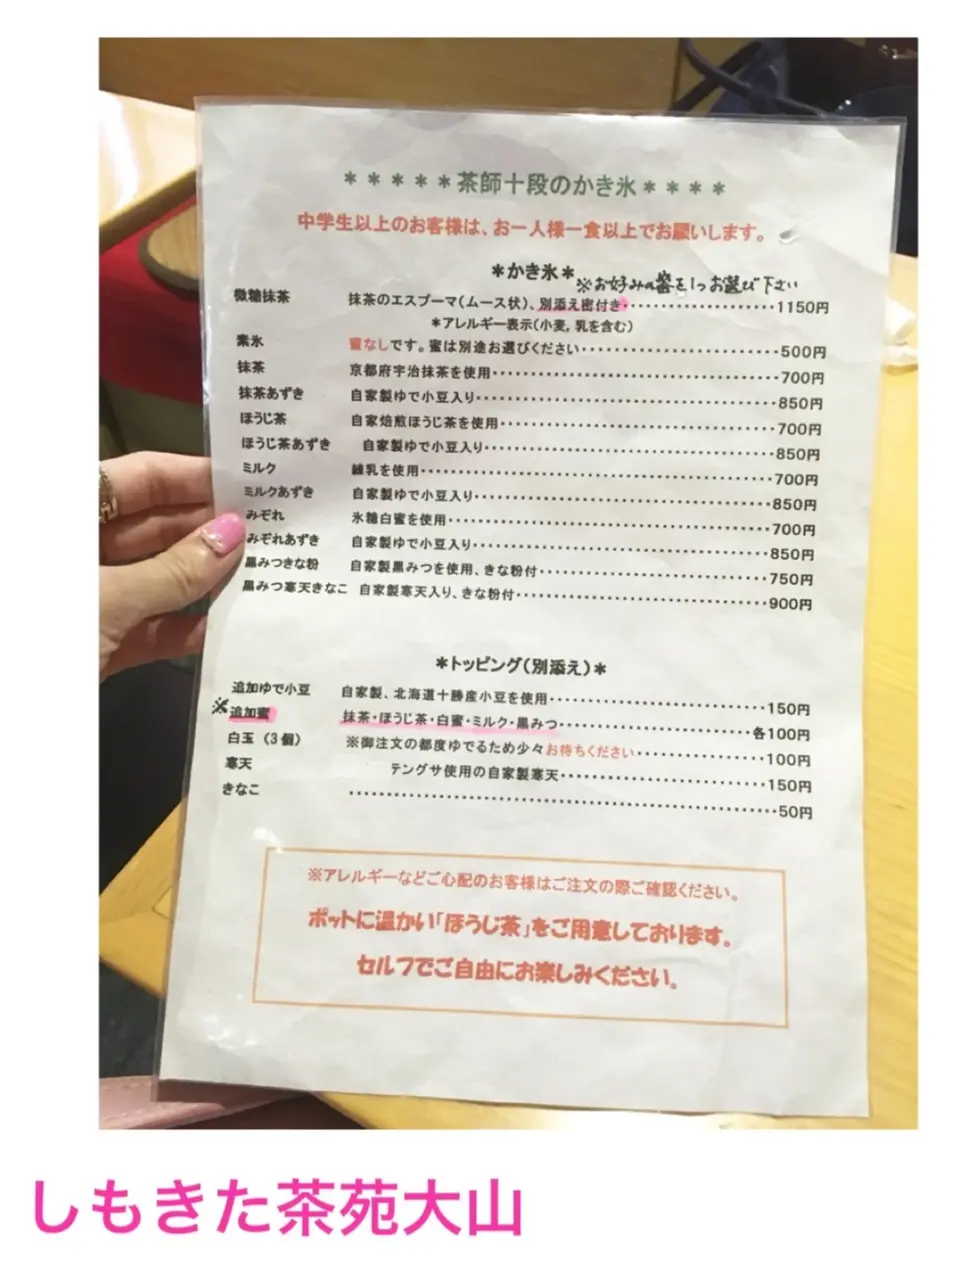 ＊＊＊＊＊茶師十段のかき氷＊＊＊＊
中学生以上のお客様は、お一人様一食以上でお願いします。
＊かき氷＊
※お好みの蜜を1つお選び下さい
微糖抹茶 抹茶のエスプーマ(ムース状)、別添え密付き・・・・・・・・・・・・・・・・・・・・1150円
＊アレルギー表示(小麦,乳を含む)
素氷 蜜なしです。蜜は別途お選びください・・・・・・・・・・・・・・・・・・・・・・・・500円
抹茶 京都府宇治抹茶を使用・・・・・・・・・・・・・・・・・・・・・・・・・・・・・・・・・・700円
抹茶あずき 自家製ゆで小豆入り・・・・・・・・・・・・・・・・・・・・・・・・・・・・・・・・・・・850円
ほうじ茶 自家焙煎ほうじ茶を使用・・・・・・・・・・・・・・・・・・・・・・・・・・・・・・・・700円
ほうじ茶あずき 自家製ゆで小豆入り・・・・・・・・・・・・・・・・・・・・・・・・・・・・・・・・・・850円
ミルク 練乳を使用・・・・・・・・・・・・・・・・・・・・・・・・・・・・・・・・・・・・・・・・・700円
ミルクあずき 自家製ゆで小豆入り・・・・・・・・・・・・・・・・・・・・・・・・・・・・・・・・・・・850円
みぞれ 氷糖白蜜を使用・・・・・・・・・・・・・・・・・・・・・・・・・・・・・・・・・・・・・700円
みぞれあずき 自家製ゆで小豆入り・・・・・・・・・・・・・・・・・・・・・・・・・・・・・・・・・・・850円
黒みつきな粉 自家製黒みつを使用、きな粉付・・・・・・・・・・・・・・・・・・・・・・・・・・・750円
黒みつ寒天きなこ 自家製寒天入り、きな粉付・・・・・・・・・・・・・・・・・・・・・・・・・・・・・900円
＊トッピング(別添え)＊
追加ゆで小豆 自家製、北海道十勝産小豆を使用・・・・・・・・・・・・・・・・・・・・・・・・・150円
※追加蜜 抹茶・ほうじ茶・白蜜・ミルク・黒みつ・・・・・・・・・・・・・・・・・・・・・・各100円
白玉 (3個) ※御注文の都度ゆでるため少々お待ちください・・・・・・・・・・・・・・・・・・100円
寒天 テングサ使用の自家製寒天・・・・・・・・・・・・・・・・・・・・・・・・・・150円
きなこ ・・・・・・・・・・・・・・・・・・・・・・・・・・・・・・・・・・・・・・・・・・・・・・・・・50円
※アレルギーなどご心配のお客様はご注文の際ご確認ください。
ポットに温かい「ほうじ茶」をご用意しております。
セルフでご自由にお楽しみください。
しもきた茶苑大山